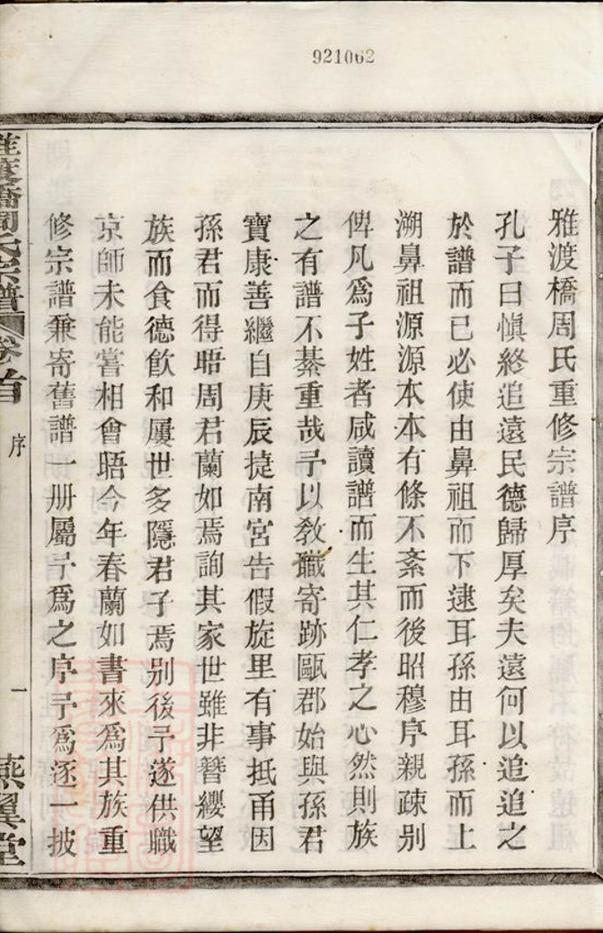 921062
雅渡橋周氏重修宗譜序
孔子曰愼終追遠民德歸厚矣夫遠何以追追之
於譜而已必使由鼻祖而下逮耳孫由耳孫而上
溯鼻祖源源本本有條不紊而後昭穆序親疎别
俾凡爲子姓者咸讀譜而生其仁孝之心然則族
之有譜不綦重哉予以敎職寄跡甌郡始與孫君
寶康善繼自庚辰捷南宮告假旋里有事抵甬因
孫君而得晤周君蘭如焉詢其家世雖非簪纓望
族而食德飮和屢世多隱君子焉别後予遂供職
京師未能嘗相會晤今年春蘭如書來爲其族重
修宗譜兼寄舊譜一册屬予爲之序予爲逐一披
雅渡橋周氏宗譜 卷首
序
一
燕翼堂